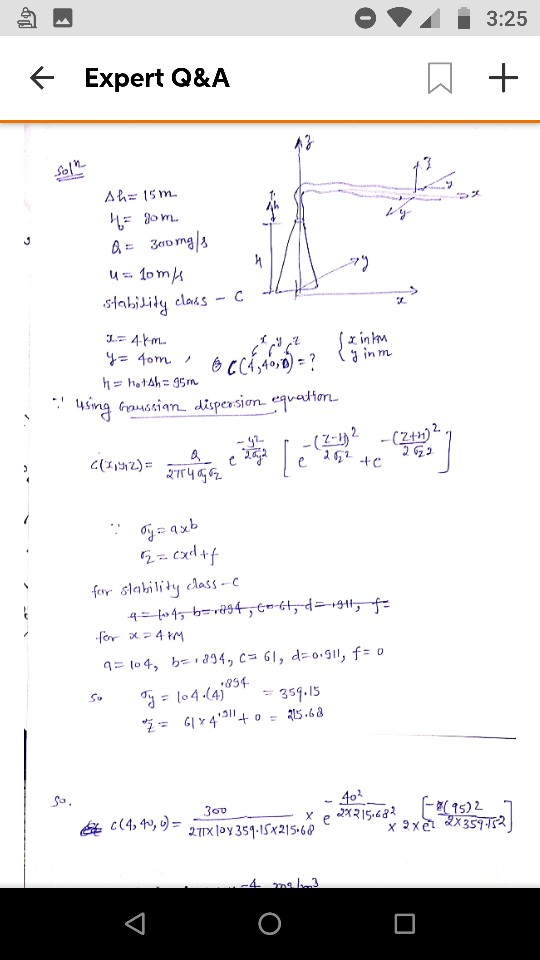 3:25
Expert Q&A
Solⁿ
Δh = 15m
H = 80m
Q = 300mg/s
u = 10m/s
stability class - C
z
Δh
H
y
x
z
y
x
y
x = 4km
y = 40m, C(4,40,0) = ? {x in km
x y z
y in m
h = H₀+Δh = 95m
∵ Using Gaussian dispersion equation
C(x,y,z) = Q/2πuσyσz e^-y²/2σy² [e^-(z-H)²/2σz² + e^-(z+H)²/2σz²]
∵ σy = axb
σz = cxd+f
for stability class - C
a = 104, b = .894, c = 61, d = .911, f =
for x = 4km
a = 104, b = .894, c = 61, d = 0.911, f = 0
so σy = 104.(4)^.894 = 359.15
σz = 61x4^.911 + 0 = 215.68
so.
C(4,40,0) = 300/2πx10x359.15x215.68 x e^-40²/2x215.68² x 2xe^[-(95)2/2x359.152]
-4 mg/m3